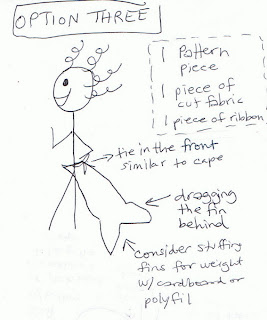 OPTION THREE
1 Pattern
piece
1 piece of
cut fabric
1 piece of ribbon
tie in the front
similar to cape
dragging
the fin
behind
consider stuffing
fins for weight
w/ cardboard or
polyfil